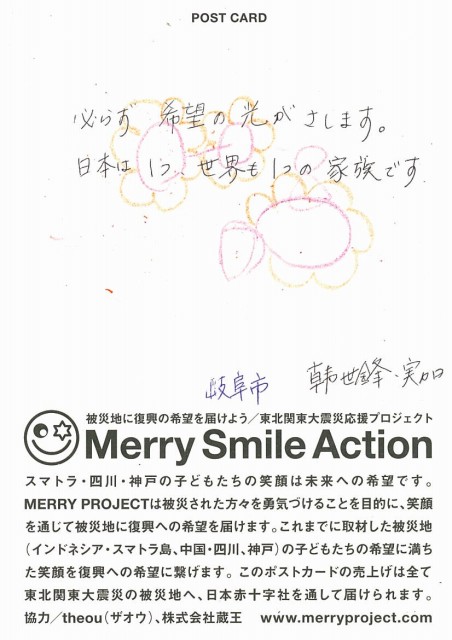 POST CARD
必らず 希望の光がさします。
日本は1つ、世界も1つの家族です
岐阜市 韓世鋒・実加
被災地に復興の希望を届けよう/東北関東大震災応援プロジェクト
Merry Smile Action
スマトラ・四川・神戸の子どもたちの笑顔は未来への希望です。
MERRY PROJECTは被災された方々を勇気づけることを目的に、笑顔
を通じて被災地に復興への希望を届けます。これまでに取材した被災地
(インドネシア・スマトラ島、中国・四川、神戸)の子どもたちの希望に満ち
た笑顔を復興への希望に繋げます。このポストカードの売上げは全て
東北関東大震災の被災地へ、日本赤十字社を通して届けられます。
協力/theou(ザオウ)、株式会社蔵王 www.merryproject.com